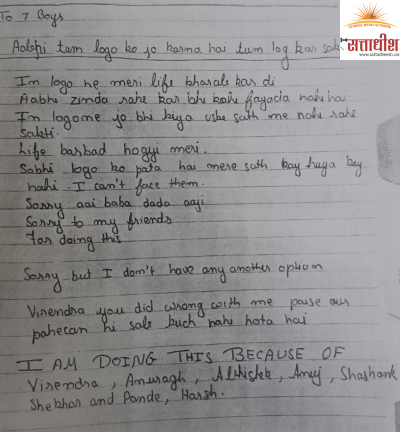 सत्ताधीश
www.sattadheesh.com
To 7 Boys
tum logo ko jo karna hai tum log kar
Im logo ne meri life kar di
Aabhi zinda rahe kar bhi kahi fayada nahi hai
In logome jo bhi kiya uske sath me nahi rahi
Sakti.
Life barbad hogyi meri.
Sabhi logo ko pata hai mere sath kay huya kay
nahi. I can't face them.
Sorry aai baba dada aaji
Sorry to my friends
For doing this
Sorry but I don't have any another option
Virendra you did wrong with me paise aur
pahecan hi sale kuch nahi hota hai
I AM DOING THIS BECAUSE OF
Virendra, Anuragh, Abhishek, Anuj, Shashank
Shekhar and Pande, Harsh.